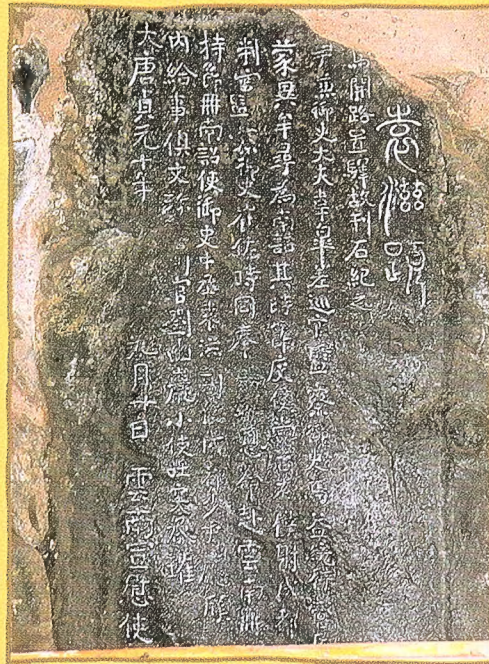 大唐貞元十年九月廿日雲南宣慰使
內給事俱文珍判官劉幽巖小使吐突承璀
持節冊南詔使御史中丞袁滋副使成都少尹龐頎
判官監察御史崔佐時同奉恩命赴雲南冊
蒙異牟尋為南詔其時節度使尚書右僕射成都
尹兼御史大夫韋皋差巡官監察御史馬益統行營兵
馬開路置驛故刊石紀之
袁滋題